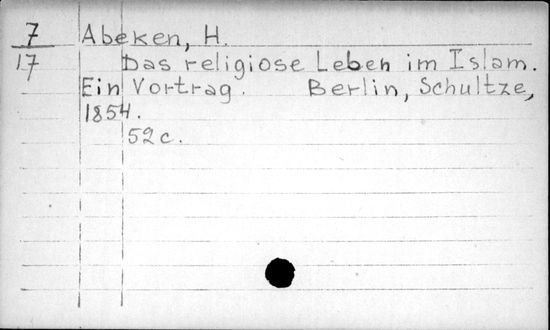 7
17
Abeken, H.
Das religiose Leben im Islam.
Ein Vortrag. Berlin, Schultze,
1854.
52 c.